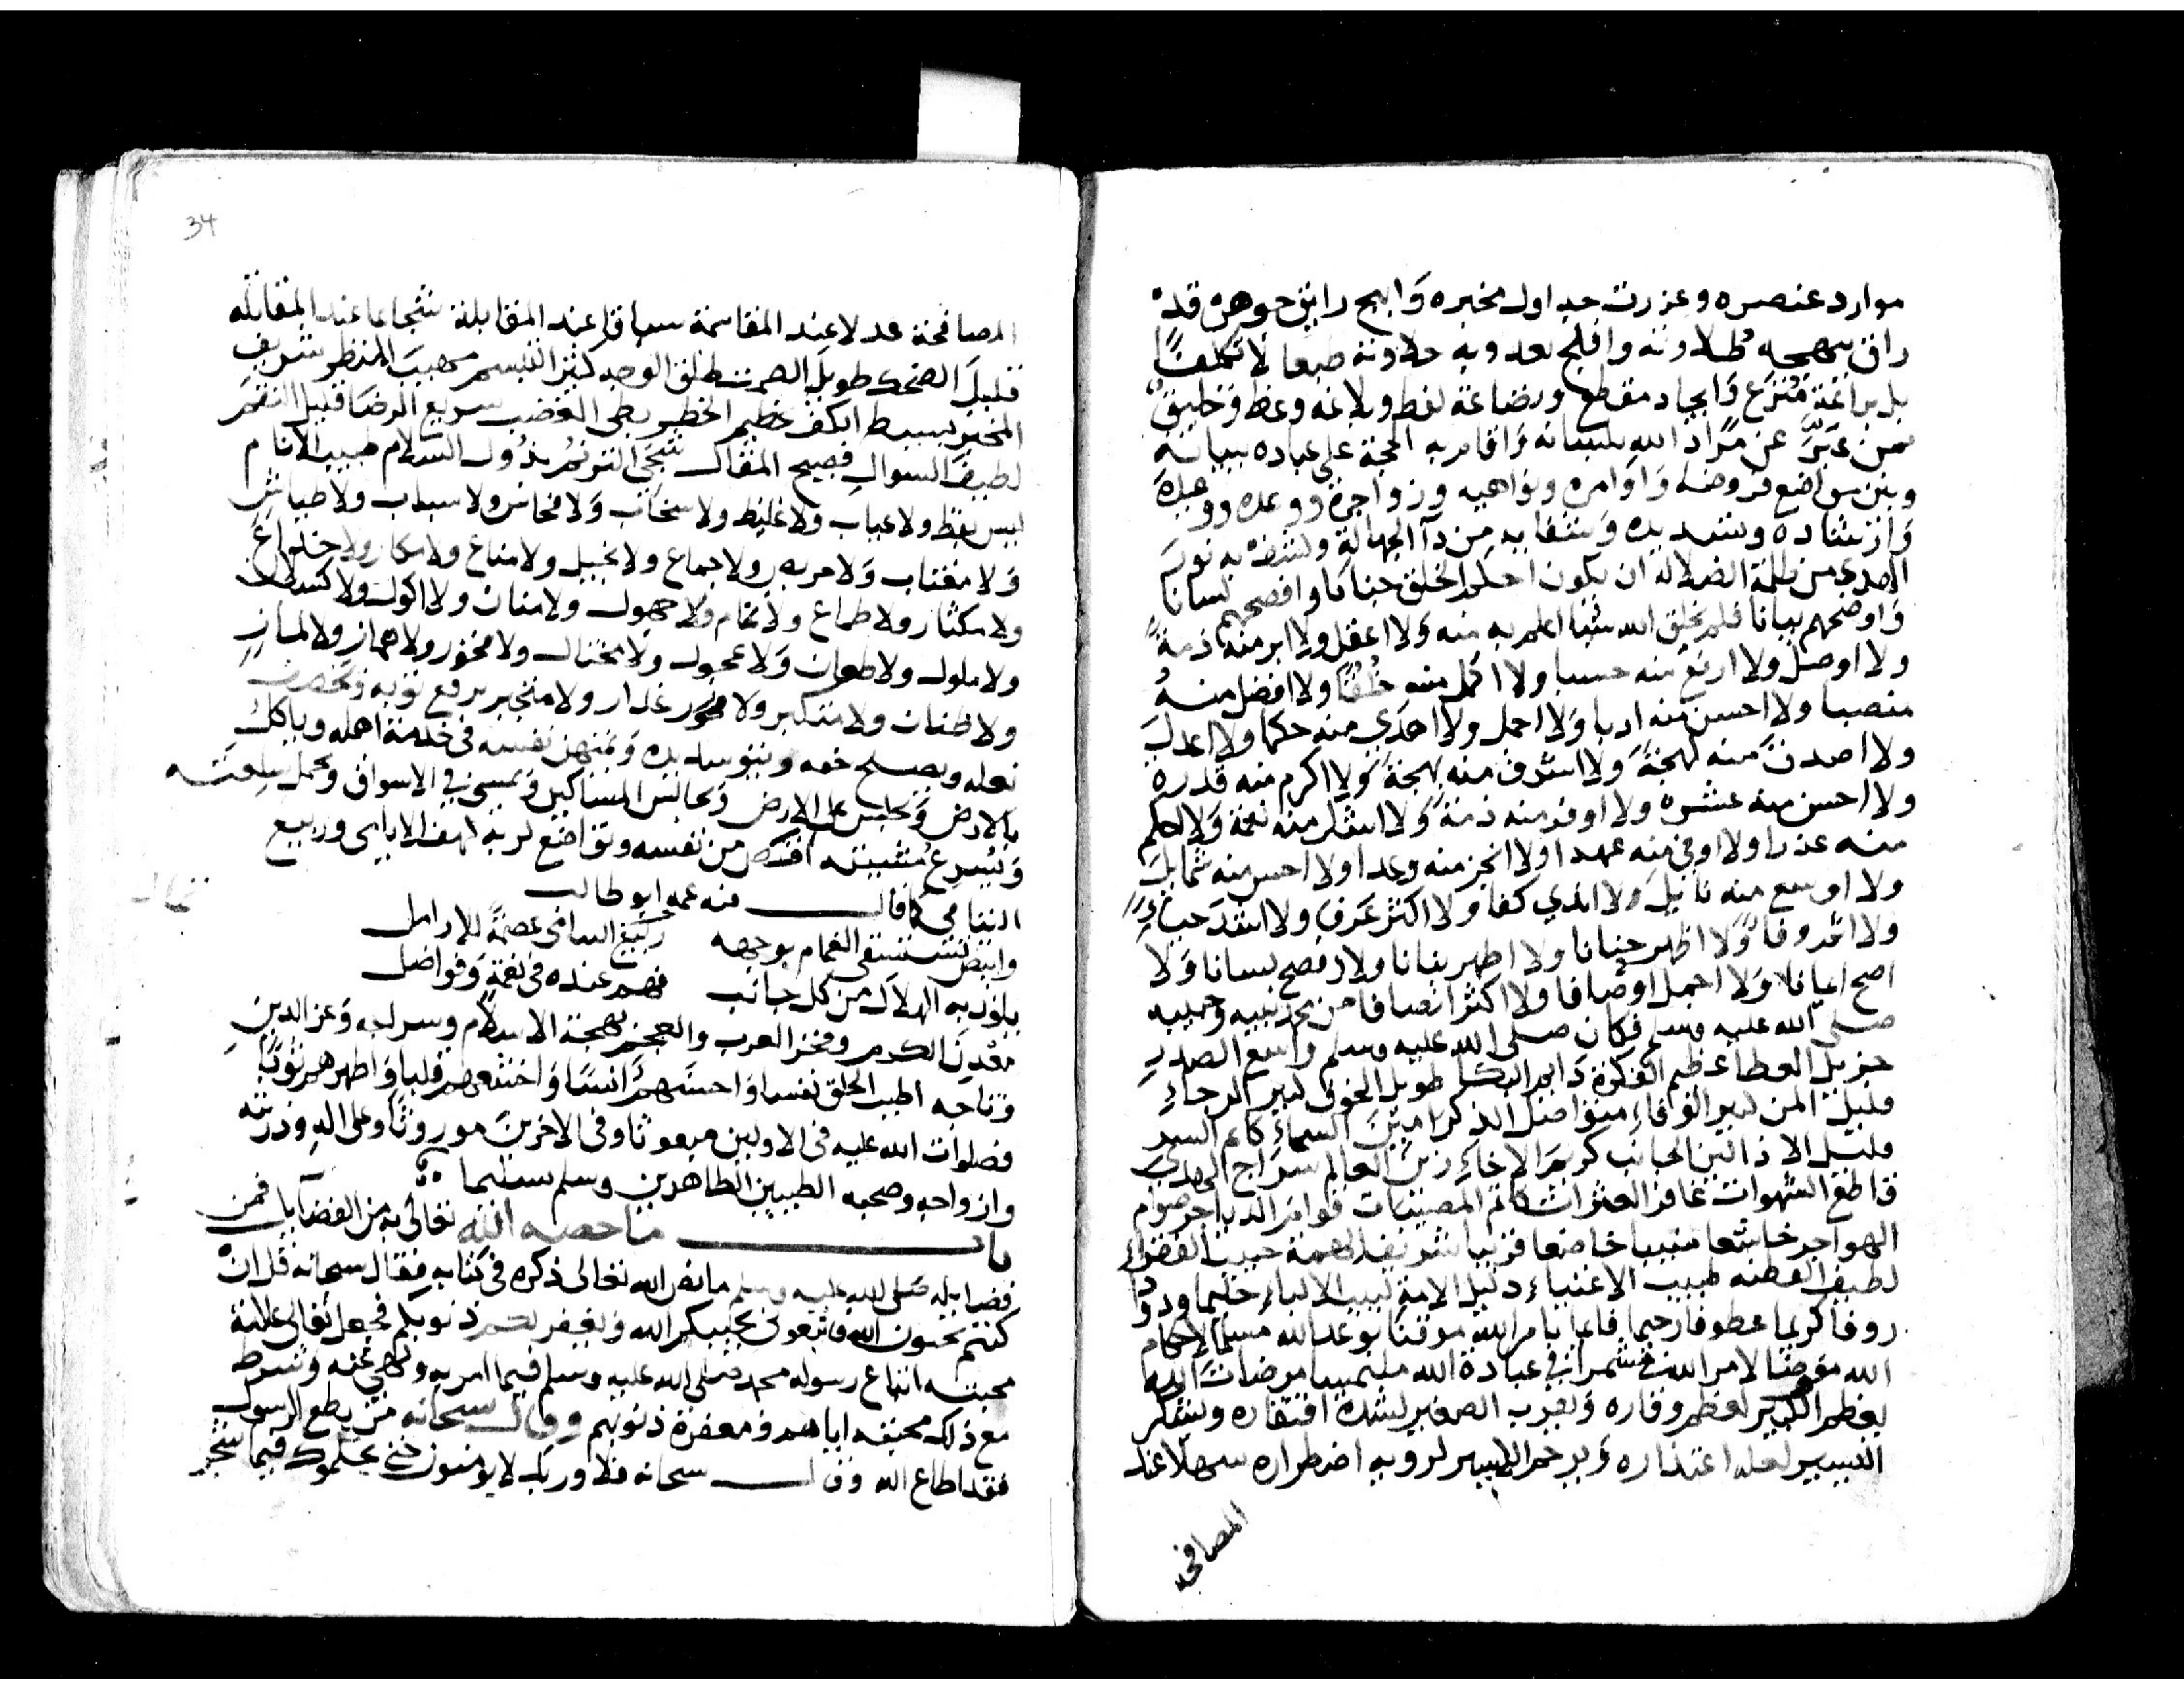 موارد عنصره وغزرت جداول مخبره وابهج رايق جوهره قده
راق بمهجه طلاوته وافلج بعذوبه حلاوته طبعا لا تكلفا
بل براعة منزع وايجاد مقطع ورضاعة لفظ وبلاغه وعظ وخليق
بمن عبر عن مراد الله بلسانه واقام به الحجة على عباده ببيانه
وبين مواضع فروضه واوامره ونواهيه وزواجره ووعده ووعيده
وارشاده وتسديده وشفا به من دآ الجهالة وبنوره نور
الهدى من ظلمة الضلاله ان يكون احكم الخلق جنانا وافصحهم لسانا
واوضحهم بيانا فلم يخلق الله شيا اعلم به منه ولا اعقل ولا ابر منه ذمة
ولا اوصل ولا ارفع منه حسبا ولا اكمل منه خُلُقًا ولا افضل منه
منصبا ولا احسن منه ادبا ولا احمل ولا اهدي منه حكما ولا اعدل
ولا اصدق منه لهجة ولا اشرف منه بهجة ولا اكرم منه قدره
ولا احسن منه عشره ولا اوفر منه ذمة ولا اشكر منه نعمة ولا اكلم
منه عذرا ولا اوفى منه عهدا ولا انجز منه وعدا ولا احسن منه شمايل
ولا اوسع منه نايل ولا اندي كفا ولا اكثر عرفا ولا اشد حياء
ولا اظهر جنانا ولا اطهر بنانا ولا افصح لسانا ولا
اصح ايمانا ولا اجمل اوصافا ولا اكثر انصافا من محمد نبيه وحبيبه
صلى الله عليه وسلم فكان صلى الله عليه وسلم واسع الصدر
جزيل العطا عظيم الفكرة دايم البكا طويل الخوف كبير الرجاء
قليل المن كبير الوفاء متواصل الذكر امين السماء كاتم السر
قليل الاذا لين الجانب كريم الاخاء زين العالم سراج الهدي
قاطع الشهوات غافر العثرات كاتم المصيبات قوام الدياجر صوام
الهواجر خاشعا منيبا خاضعا قريبا شريف الهمة حبيب الفقراء
لطيف الفطنه طبيب الاغنياء دليل الامة لبيب الالباء حليما ودودا
روفا كريما عطوفا رحيما قايما بامر الله موقنا بوعد الله مسلما لاحكام
الله مفوضا لامر الله مشمرا في عبادة الله ملتمسا مرضات الله
يعظم الكبير لعظم وقاره ويقرب الصغير لشدة افتقاره ويشكر
اليسير لعله اعتذاره ويرحم الاسير لرويه اضطراره سهلا عند
المصافحه
34
المصافحة عدلا عند المقاسمة سباقا عند المقابلة شجاعا عند المقاتله
قليل الضحك طويل الصمت طلق الوجه كثير التبسم مهيب المنظر شريف
المخبر بسيط الكف عظيم الخطر بطى الغضب سريع الرضا قليل النقم
لطيف السوال فصيح المقال شجي الترنم بذول السلام حبيب الانام
ليس بفظ ولا عياب ولا غليظ ولا سخاب ولا فحاش ولا سباب ولا طياش
ولا مغتاب ولا مريب ولا جماع ولا بخيل ولا مناع ولا مكار ولا خداع
ولا مكثار ولا طماع ولا نمام ولا جهول ولا منان ولا اكول ولا كسلان
ولا ملول ولا طعان ولا عجول ولا مختال ولا فخور ولا هماز ولا لماز
ولا ظنان ولا متكبر ولا غدار ولا متجبر يرقع ثوبه ويخصف
نعله ويصلح خفه ويتوسد يده ويمهن نفسه في خدمة اهله وياكل
بالارض ويجلس على الارض ويجالس المساكين ويمشي في الاسواق ويحمل سلعته
ويسرع مشيته اقتص من نفسه وتواضع لربه كهف الايامى وربيع
اليتامي كما قال فيه عمه ابو طالب
وابيض يستسقى الغمام بوجهه ربيع اليتامى عصمة للارامل
يلوذ به الهلاك من كل جانب فهم عنده في نعمة وفواضل
معدن الكرم وفخر العرب والعجم بهجة الاسلام وسراجه وعز الدين
وتاجه اطيب الخلق نفسا واحسنهم انسا واخشعهم قلبا واطهرهم ثوبا
فصلوات الله عليه في الاولين مبعوثا وفي الاخرين موروثا وعلى اله وذريته
وازواجه وصحبه الطيبين الطاهرين وسلم تسليما
باب ما خصه الله تعالى به من الفضايل فمن
فضايله صلى الله عليه وسلم ما نص الله تعالى ذكره في كتابه فقال سبحانه قل ان
كنتم تحبون الله فاتبعوني يحببكم الله ويغفر لكم ذنوبكم فجعل تعالى علامة
محبته اتباع رسوله محمد صلى الله عليه وسلم فيما امر به ونهي عنه وشرط
مع ذلك محبته اياهم ومغفرة ذنوبهم وقال سبحانه من يطع الرسول
فقد اطاع الله وقال سبحانه فلا وربك لا يومنون حتى يحكموك فيما شجر